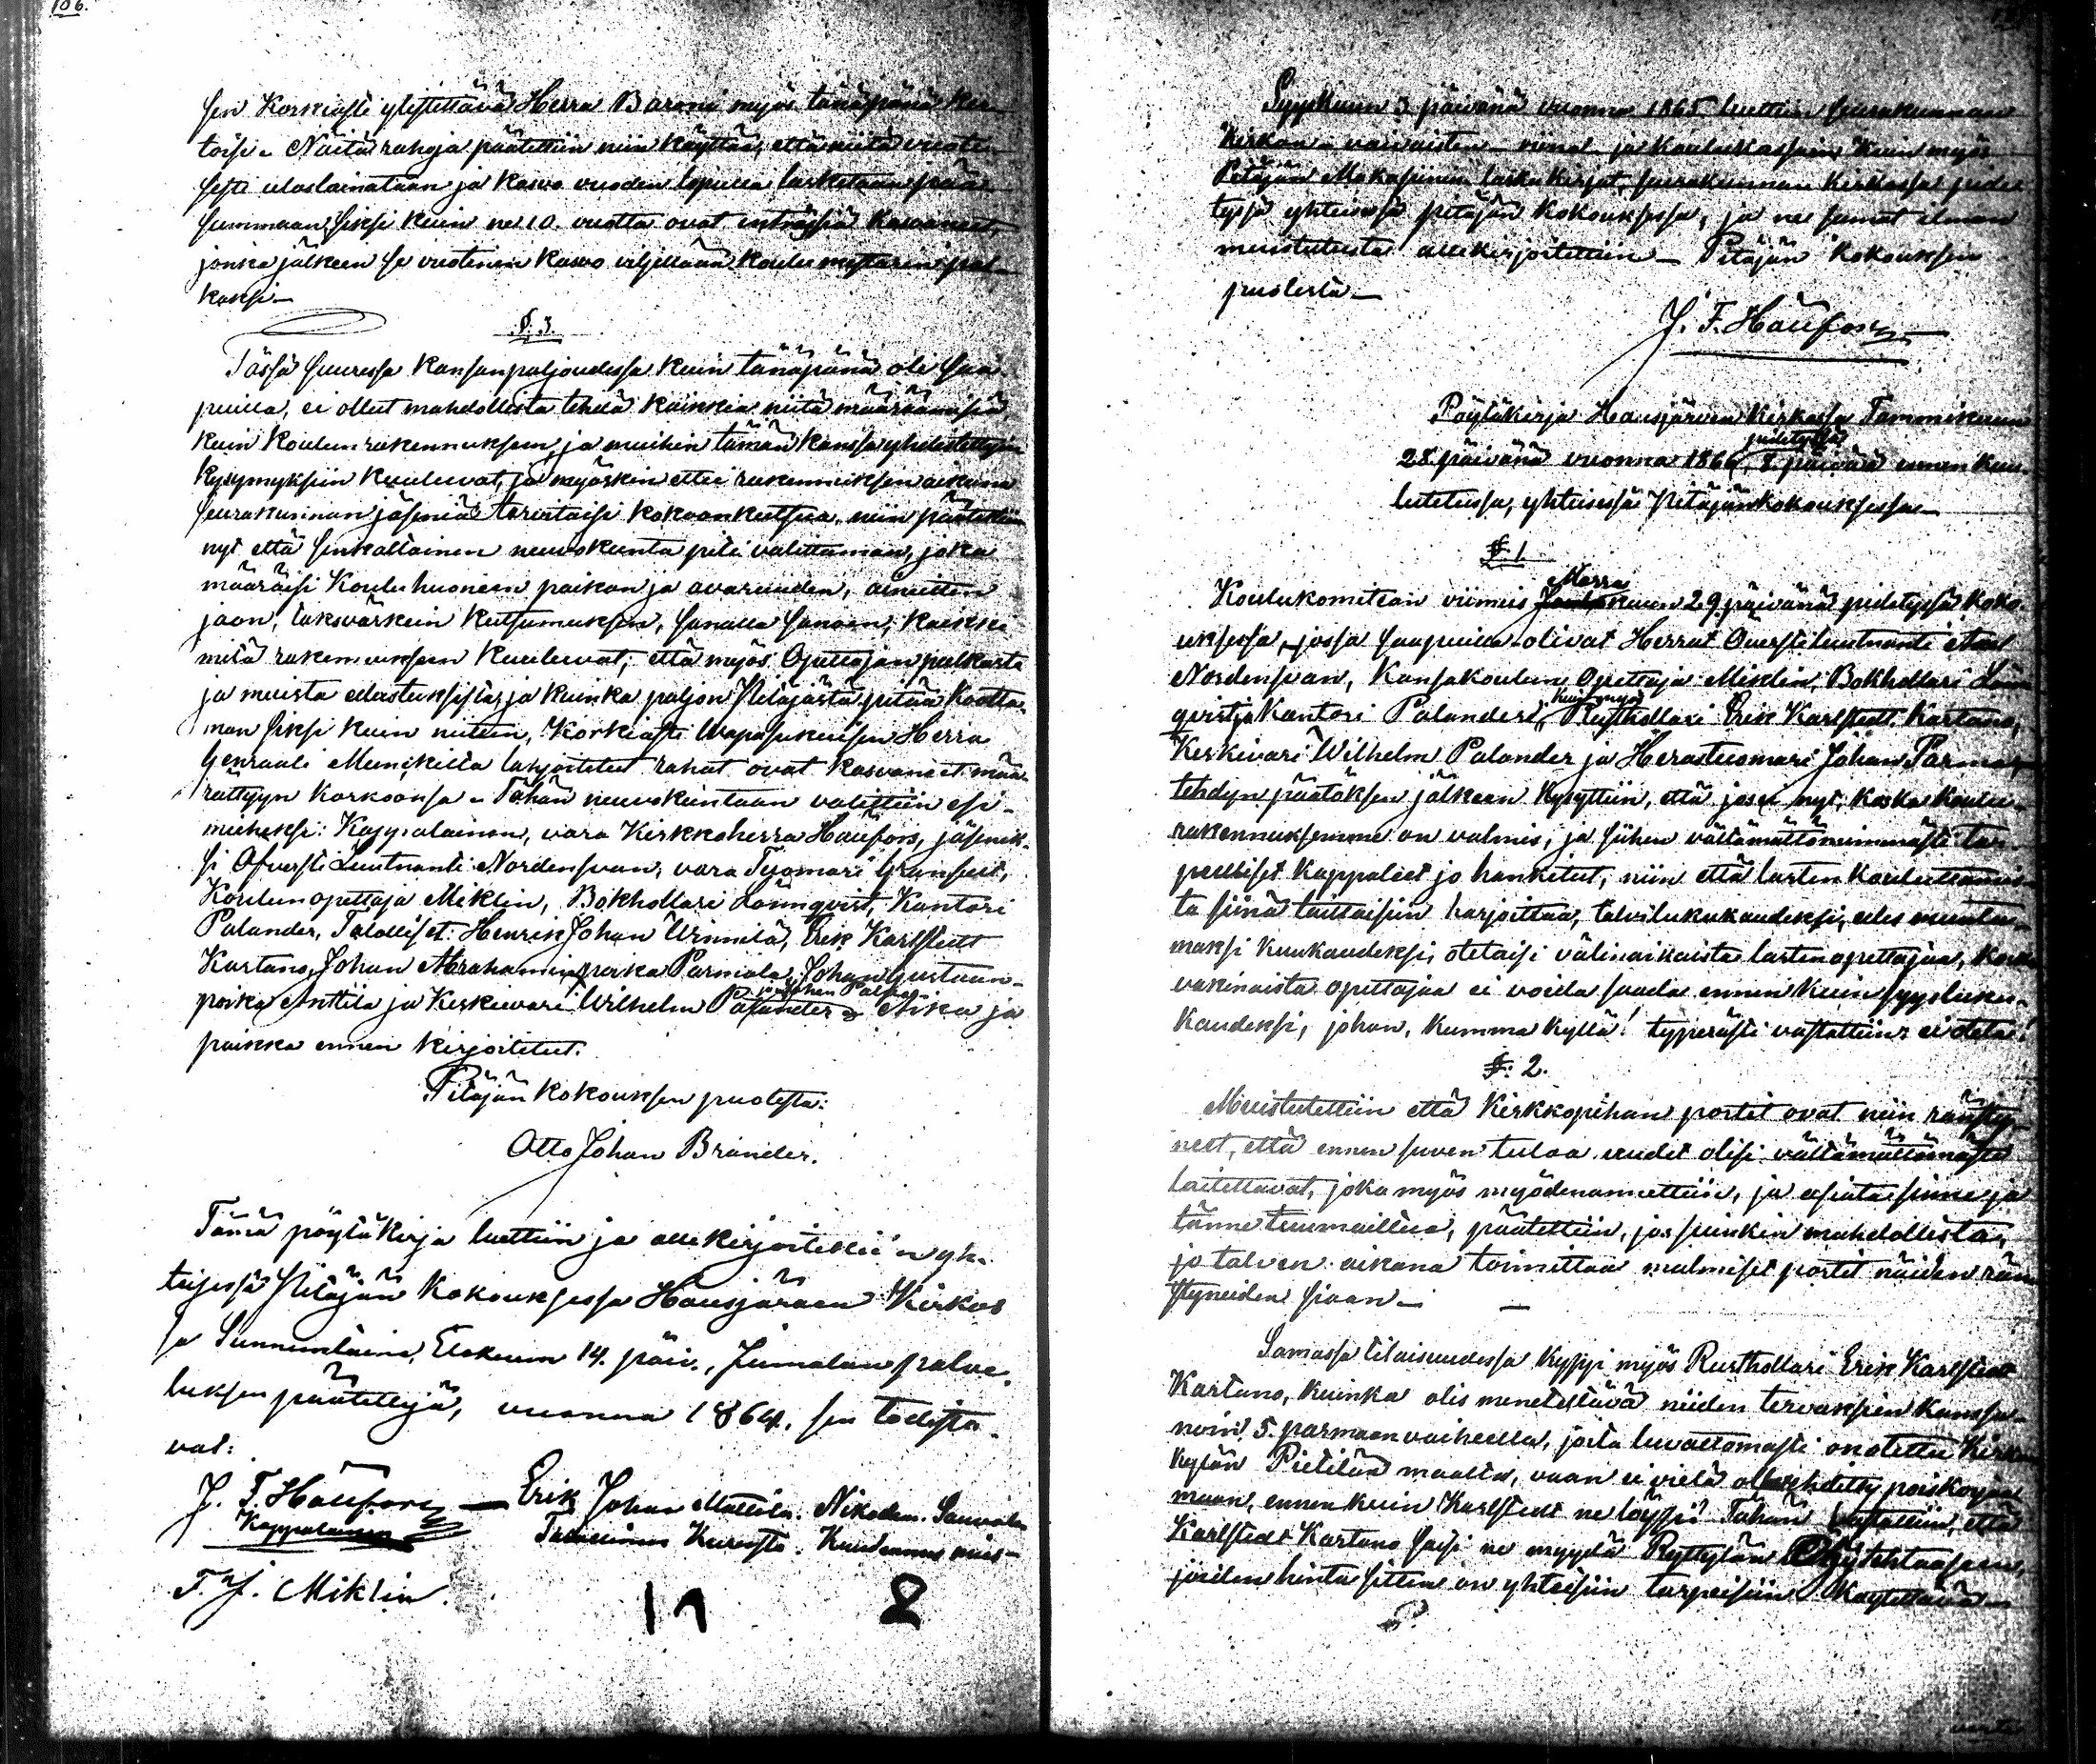 106.
sen Korkiasti ylistettävä Herra Baroni myös tänäpänä ker-
toisi. Näitä rahoja päätettiin niin käyttää, että niitä vuote-
sesti uloslainataan ja kasvo vuoden lopulla lasketaan pää-
summaan, siksi kuin ne 10. vuotta ovat intressiä kasvaneet,
jonka jälkeen se vuotinen kasvo viljellään Koulumestarin pal-
kaksi.
§. 3.
Tässä suuressa kansanpaljoudessa kuin tänäpänä oli saa-
puilla, ei ollut mahdollista tehdä kaikkia niitä määräämisiä
kuin Koulun rakennukseen, ja muihin tämän kanssa yhdistettyin
kysymyksiin kuuluvat, ja myöskin ettei rakennuksen aikana
seurakunnan jäseniä tarvitaisi kokoonkutsua, niin päätettiin
nyt että senkaltainen neuvokunta piti valittaman, joka
määräisi Kouluhuoneen paikan ja avaruuden, aineitten
jaon, taksvärkein kutsumuksen, sanalla sanoen, kaikki
mitä rakennukseen kuuluvat, että myös Opettajan palkasta
ja muista edastuksista, ja kuinka paljon Pitäjästä pitää kootta-
man siksi kuin mitein, Korkiasti Wapasukuisen Herra
Genraali Munkilta lahjoitetut rahat ovat kasvaneet mää-
rättyyn korkoonsa. Tähän neuvokuntaan valittiin esi-
mieheksi: Kappalainen, vara Kirkkoherra Häufors, jäsenik-
si Ofversti Luutnanti Nordensvan, vara Tuomari
Koulunopettaja Miklin, Bokhollari Lönnqvist, Kantori
Palander, Talolliset: Henrik Johan Unnila, Erik Karlstedt
Kartano, Johan Abrahaminpoika Parmala, Johan Gustaan-
poika Anttila ja Keskievari Wilhelm Palander. Aika ja
paikka ennen kirjoitetut.
Pitäjän kokouksen puolesta:
Otto Johan Brander.
Tämä pöytäkirja luettiin ja allekirjoitettiin yh-
teisessä Pitäjän Kokouksessa Hausjärven Kirkos
sa Sunnuntaina, Elokuun 14. päiv., Jumalan palve-
luksen päätettyä, vuonna 1864. sen todista-
vat:
J. F. Häufors Erik Johan Mattila. Nikodem. Sauvala
Kappalainen Kuudennus mies-
F. J. Miklin.
Syyskuun 3 päivänä vuonna 1865 luettiin seurakunnan
Kirkon- vaivaisten- viina- ja koulukassain, kuin myös
Pitäjän Makasiinin laskukirjat, seurakunnan kirkossa pide-
tyssä yhteisessä pitäjän kokouksessa, ja ne samat ilman
muistutusta allekirjoitettiin. Pitäjän kokouksen
puolesta
J. F. Häufors
Pöytäkirja Hausjärven Kirkossa Tammikuun
pidetyssä
28. päivänä vuonna 1866, 8. päivää ennen kuu-
lutetussa, yhteisessä Pitäjänkokouksessa.
§. 1.
Marras
Koulukomitean viimeis kuun 29. päivänä pidetyssä koko-
uksessa, jossa saapuilla olivat Herrat Överstiluutnanti Axel
Nordensvan, Kansakoulun Opettaja Miklin, Bokhollari Lönn
kuin myös
qvist ja Kantori Palander, Rusthollari Erik Karlstedt Kartano,
Keskivari Wilhelm Palander ja Herastuomari Johan Parmala,
tehdyn päätöksen jälkeen kysyttiin, että jos ei nyt, koska koulu-
rakennuksemme on valmis, ja siihen välttämättömimmästi tar-
peelliset kappaleet jo hankitut, niin että lasten kouluttamis-
ta siinä taittaisiin harjoittaa, talvilukukaudeksi, edes muuta-
maksi kuukaudeksi, otetaisi välinaikaista lastenopettajaa, koska
vakinaista opettajaa ei voida saada ennen kuin syysluku-
kaudeksi, johon, kumma kyllä! typerästi vastattiin: ei oteta!
§: 2.
Muistutettiin että Kirkkopihan portit ovat niin ränsty-
neet, että ennen suven tuloa uudet olisi välttämättömästi
laitettavat, joka myös myödenannettiin, ja asiata sinne ja
tänne tuumailtua, päätettiin, jos suinkin mahdollista,
jo talven aikana toimittaa malmiset portit näiden rän-
styneiden siaan.
Samassa tilaisuudessa kysyi myös Rusthollari Erik Karlstedt
Kartano, kuinka olis meneteltävä niiden tervaksien kanssa-
noin 5. parmaan vaiheella, joita luvattomasti on otettu Kirkon
kylän Pietilän maalta, vaan ei vielä olla ehditty poiskorjaa-
maan, ennen kuin Karlstedt ne löysi? Tähän vastattiin, että
Karlstedt Kartano saisi ne myydä Ryttylän Öljytehtaaseen,
joiden hinta sitten on yhteisiin tarpeisiin käytettävä.